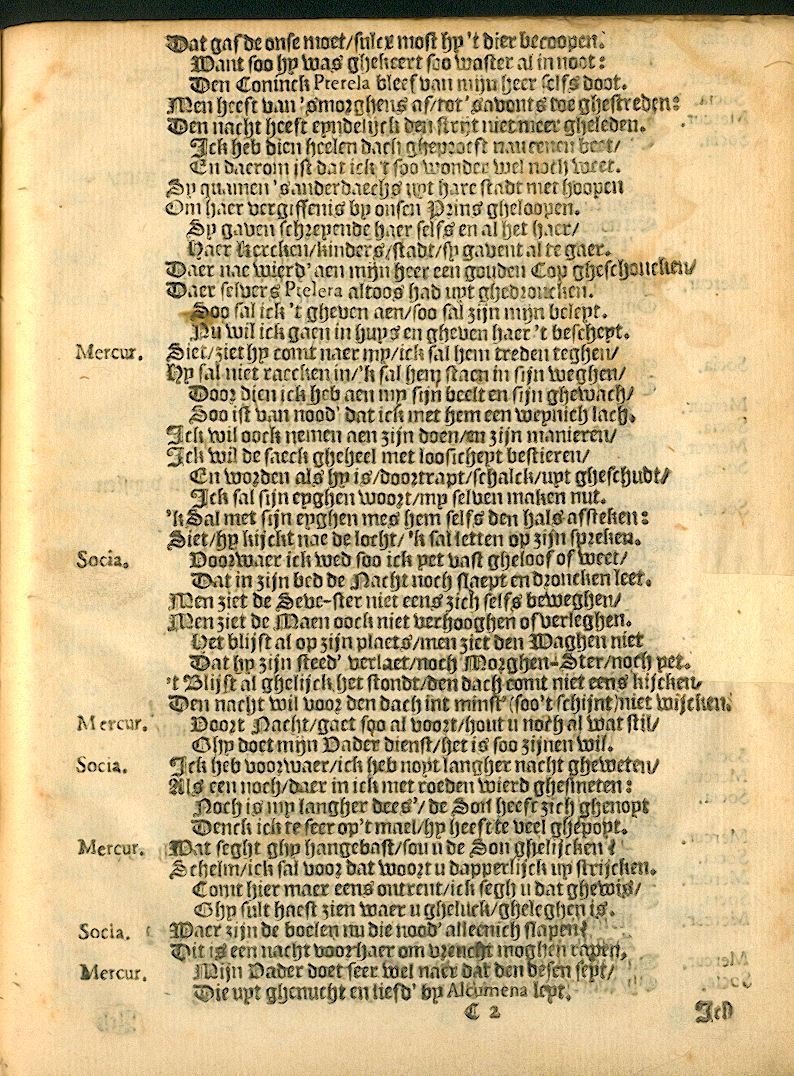 Dat gaf de onse moet/sulcx most hy 't dier becoopen.
Want soo hy was ghekeert soo waster al in noot:
Den Coninck Pterela bleef van mijn heer selfs doot.
Men heeft van 'smorghens af/tot 'savonts toe ghestreden:
Den nacht heeft eyndelijck den strijt niet meer gheleden.
Ick heb dien heelen dach gheproeft nau eenen beet/
En daerom ist dat ick 't soo wonder wel noch weet.
Sy quamen 'sanderdaechs uyt hare stadt met hoopen
Om haer vergiffenis by onsen Prins gheloopen.
Sy gaven schreyende haer selfs en al het haer/
Haer kercken/kinders/stadt/sy gavent al te gaer.
Daer nae wierd' aen mijn heer een gouden Cop gheschoncken/
Daer selvers Ptelera altoos had uyt ghedroncken.
Soo sal ick 't gheven aen/soo sal zijn mijn beleyt.
Nu wil ick gaen in huys en gheven haer 't bescheyt.
Mercur. Siet/ziet hy comt naer my/ick sal hem treden teghen/
Hy sal niet raecken in/'k sal hem staen in sijn weghen/
Door dien ick heb aen my sijn beelt en sijn ghewach/
Soo ist van nood' dat ick met hem een weynich lach.
Ick wil oock nemen aen zijn doen/en zijn manieren/
Ick wil de saeck gheheel met loosicheyt bestieren/
En worden als hy is/doortrapt/schalck/uyt gheschudt/
Ick sal sijn eyghen woort/my selven maken nut.
'k Sal met sijn eyghen mes hem selfs den hals afsteken:
Siet/hy kijckt nae de locht/'k sal letten op zijn spreken.
Socia. Voorwaer ick wed soo ick yet vast gheloof of weet/
Dat in zijn bed de Nacht noch slaept en droncken leet.
Men ziet de Seve-ster niet eens zich selfs beweghen/
Men ziet de Maen oock niet verhooghen of verleghen.
Het blijft al op zijn plaets/men ziet den Waghen niet
Dat hy zijn steed' verlaet/noch Morghen-Ster/noch yet.
't Blijft al ghelijck het stondt/den dach comt niet eens kijcken/
Den nacht wil voor den dach int minst (soo't schijnt) niet wijcken.
Mercur. Voort Nacht/gaet soo al voort/hout u noch al wat stil/
Ghy doet mijn Vader dienst/het is soo zijnen wil.
Socia. Ick heb voorwaer/ick heb noyt langher nacht gheweten/
Als een noch/daer in ick met roeden wierd ghesmeten:
Noch is my langher dees'/de Son heeft zich ghenopt
Denck ick te seer op't mael/hy heeft te veel ghepopt.
Mercur. Wat seght ghy hangebast/sou u de Son ghelijcken?
Schelm/ick sal voor dat woort u dapperlijck up strijcken.
Comt hier maer eens ontrent/ick segh u dat ghewis/
Ghy sult haest zien waer u gheluck/gheleghen is.
Socia. Waer zijn de boelen nu die nood' alleenich slapen?
Dit is een nacht voorhaer om vreucht moghen rapen.
Mercur. Mijn Vader doet seer wel naer dat den desen seyt/
Die uyt ghenucht en liefd' by Alcumena leyt.
C 2 Ick